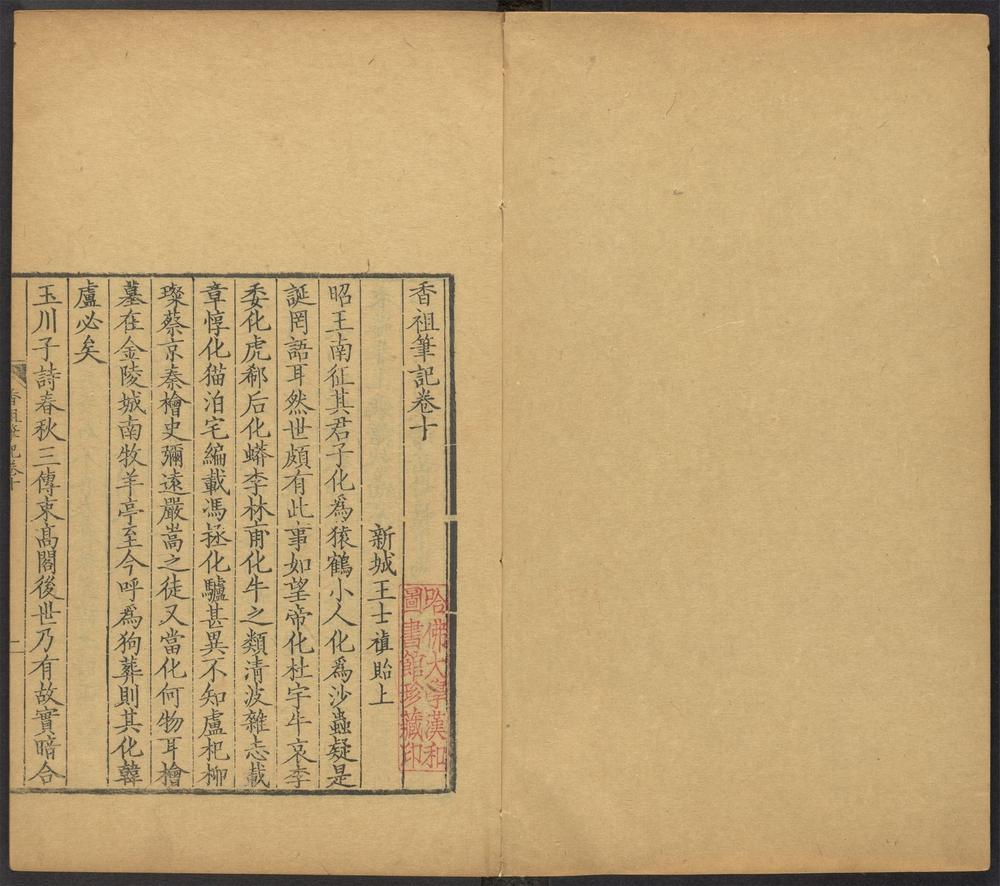 香祖筆記卷十
新城王士禛貽上
昭王南征其君子化爲猿鶴小人化爲沙蟲疑是
誕罔語耳然世頗有此事如望帝化杜宇牛哀李
委化虎郗后化蟒李林甫化牛之類清波雜志載
章惇化猫泊宅編載馮拯化驢甚異不知盧杞柳
璨蔡京秦檜史彌遠嚴嵩之徒又當化何物耳檜
墓在金陵城南牧羊亭至今呼爲狗葬則其化韓
盧必矣
玉川子詩春秋三傳束高閣後世乃有故實暗合
香祖筆記卷十
一
哈佛大學漢和
圖書館珍藏印